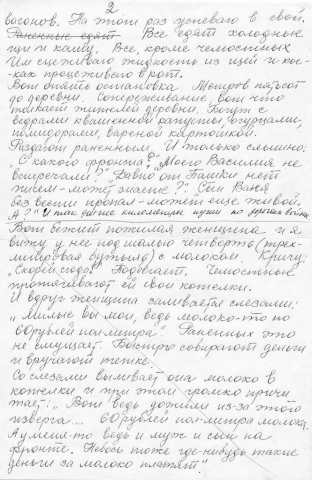 2
вогонов. На этот раз успеваю в свой.
Раненные едят Все едят холодные
щи и кашу. Все, кроме челюстных
Им сцеживаю жидкость из щей и кое-
как процеживаю в рот.
Вот опять остановка Метров пятьсот
до деревни. Сопереживание вот что
толкает жителей деревни. Бегут с
ведрами квашенной капусты, огурцами,
помидорами, вареной картошкой.
Раздают раненным. И только слышно:
"С какого фронта?" "Моего Василия не
встречали?" "Давно от Пашки нет
писем - может знаете?" "Сын Ваня
без вести пропал - может еще живой.
А?" И так долгие километры пути по дорогам войны.
Вот бежит пожилая женщина и я
вижу у нее под шалью четверть (трех-
литровая бутыль) с молоком. Кричу:
"Скорей сюда!" Подбегает, Челюстные
протягивают ей свои котелки.
И вдруг женщина заливается слезами:
"Милые вы мои, ведь молоко-то по
60 рублей пол-литра". Раненных это
не смущает. Быстро собирают деньги
и вручают тетке.
Со слезами выливает она молоко в
котелки и при этом громко причи-
тает: "Вот ведь дожили из-за этого
изверга... 60 рублей пол-литра молока.
А у меня-то ведь и муж и сын на
фронте. Небось тоже где-нибудь такие
деньги за молоко платят".